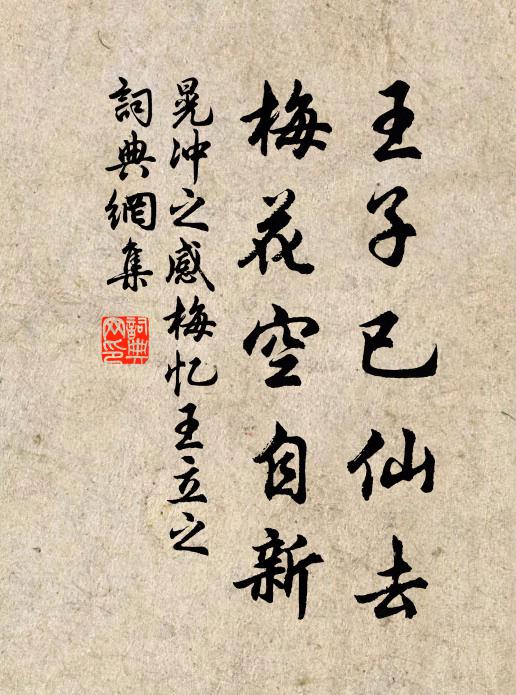 王子已仙去
梅花空自新
晁冲之感梅忆王立之
詞典網集
詞典网印